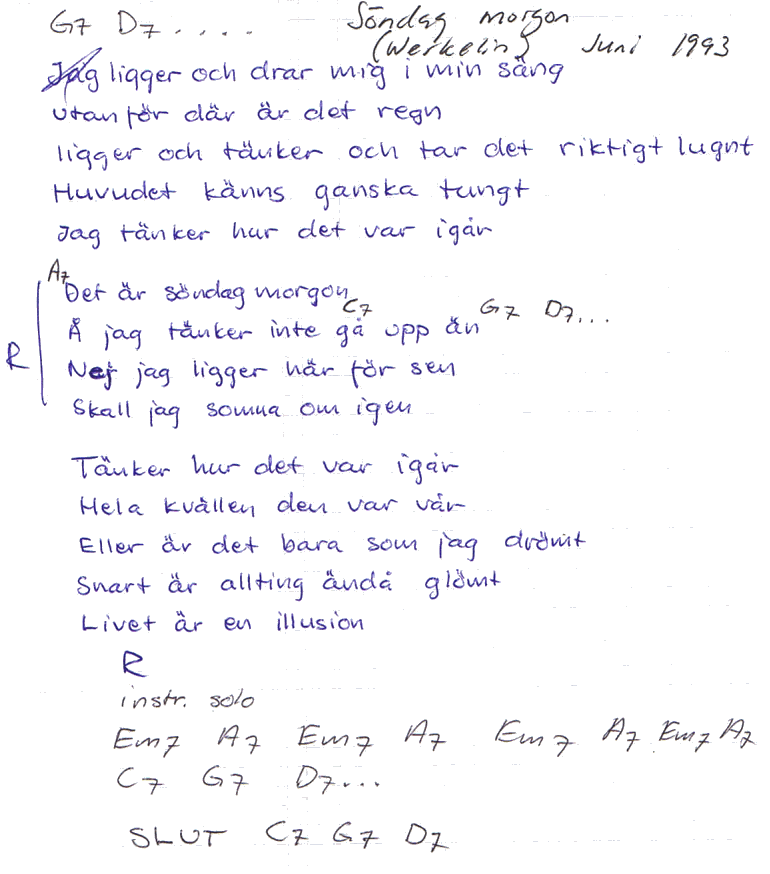 G7 D7 ..... Söndag morgon
(Werkelin) Juni 1993
Jag ligger och drar mig i min säng
utanför där är det regn
ligger och tänker och tar det riktigt lugnt
Huvudet känns ganska tungt
Jag tänker hur det var igår
A7
Det är söndag morgon
C7 G7 D7...
Å jag tänker inte gå upp än
R
Nej jag ligger här för sen
Skall jag somna om igen
Tänker hur det var igår
Hela kvällen den var vår
Eller är det bara som jag drömt
Snart är allting ändå glömt
Livet är en illusion
R
instr. solo
Em7 A7 Em7 A7 Em7 A7 Em7 A7
C7 G7 D7...
SLUT C7 G7 D7